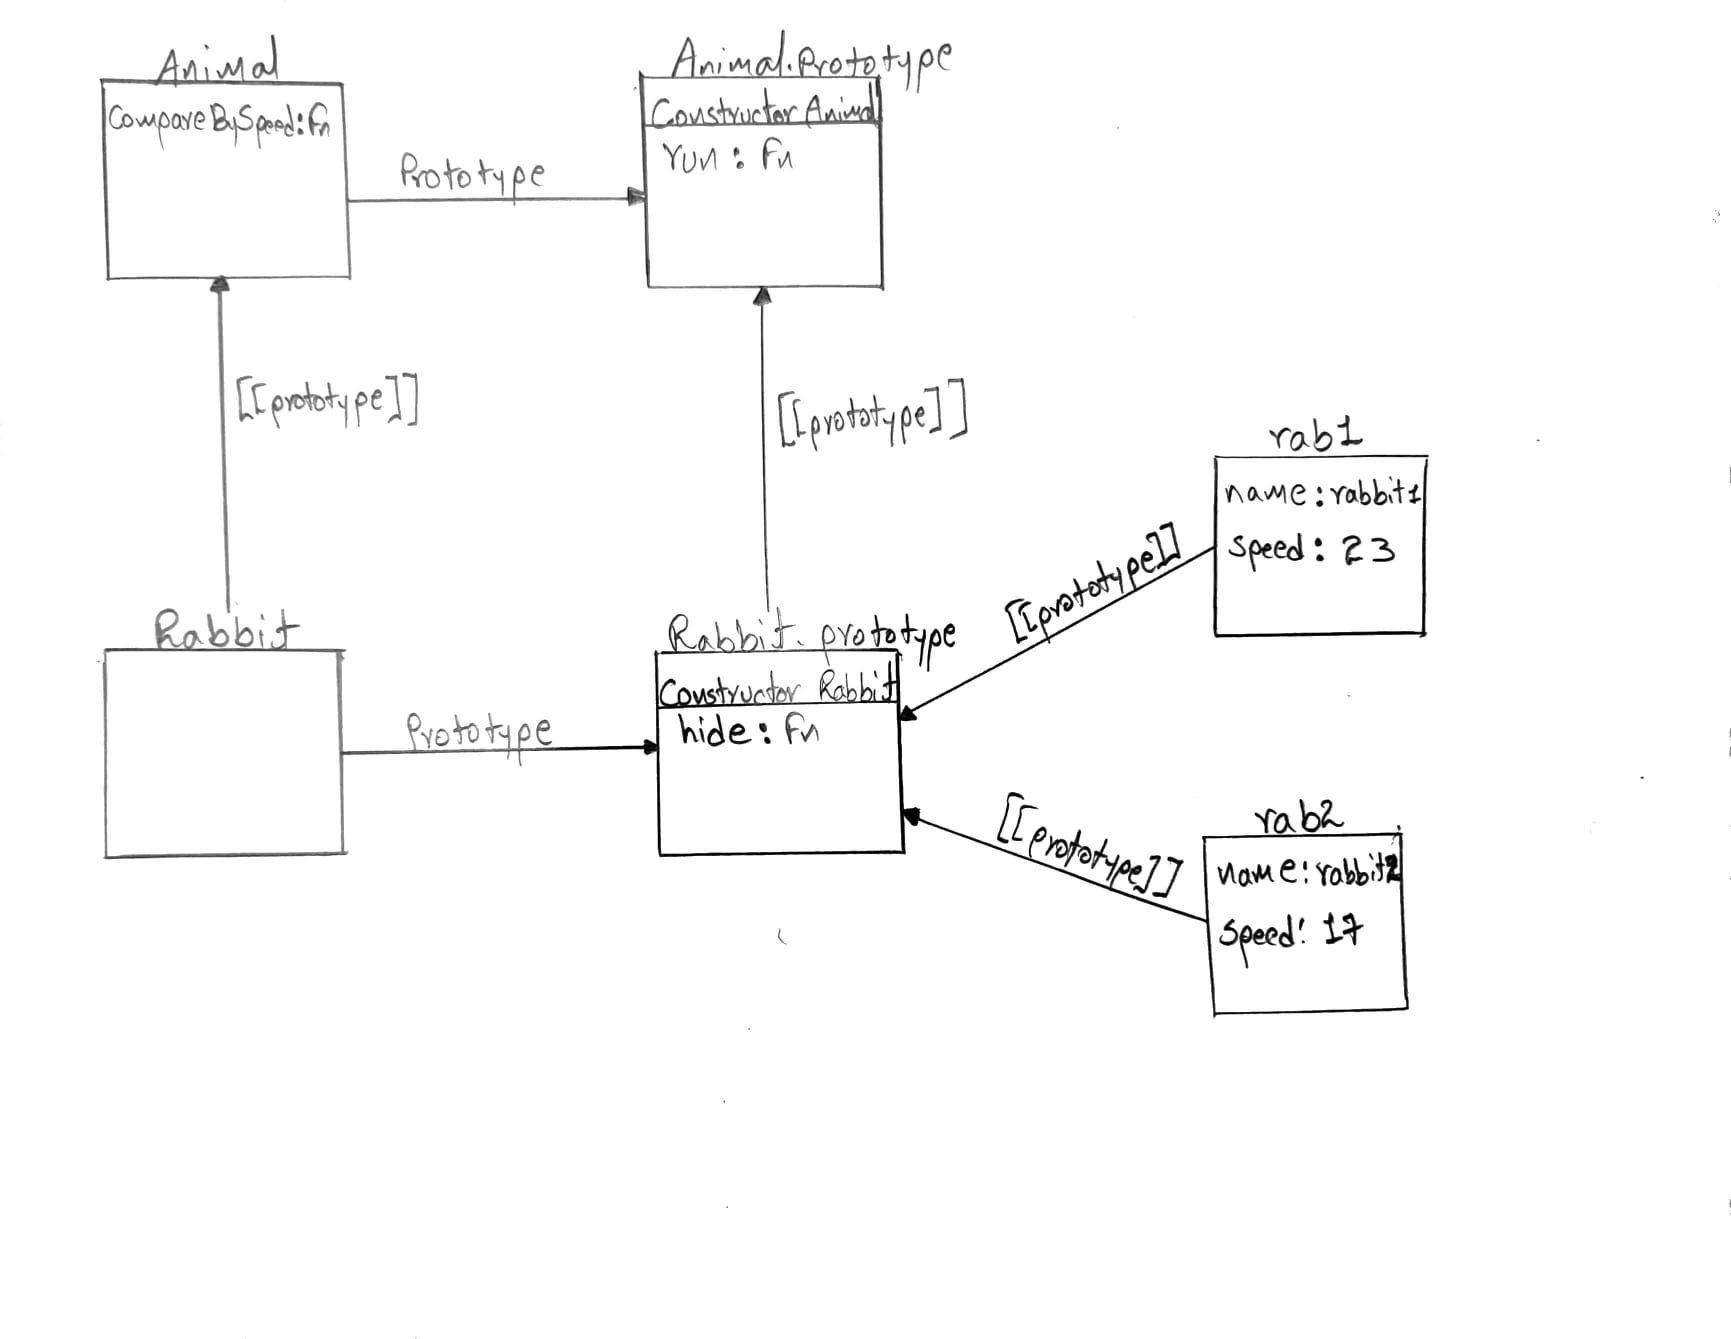 Animal
CompareBySpeed: Fn
Prototype
Animal.Prototype
Constructor Animal
run: Fn
[[prototype]]
[[prototype]]
Rabbit
Prototype
Rabbit.prototype
Constructor Rabbit
hide: Fn
[[prototype]]
rab1
name: rabbit1
speed: 23
[[prototype]]
rab2
name: rabbit2
speed: 17